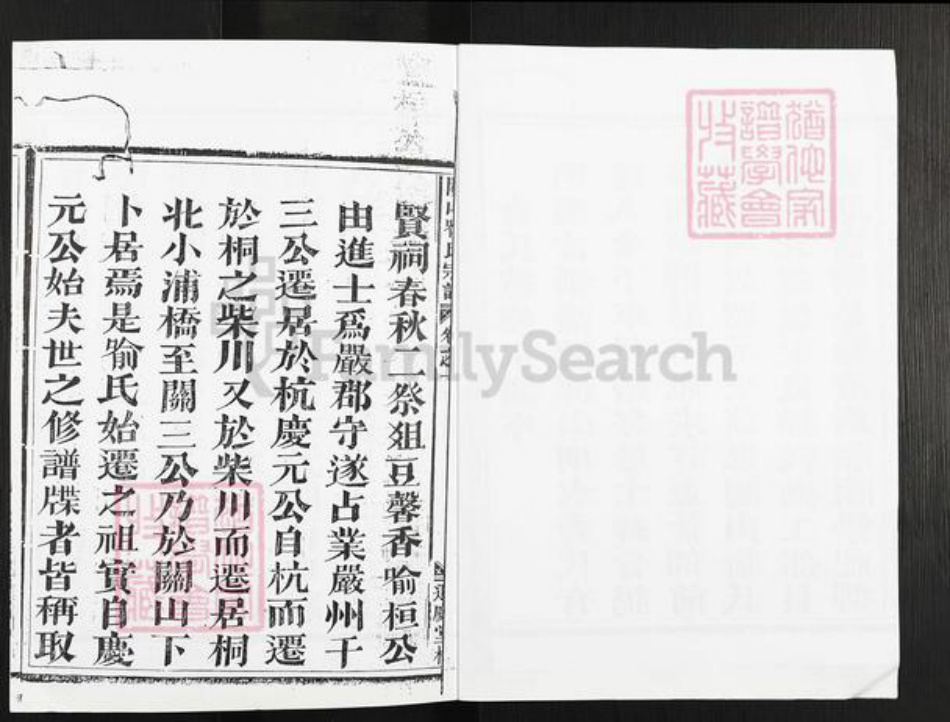 賢祠春秋二祭俎豆馨香喻桓公
由進士爲嚴郡守遂占業嚴州千
三公遷居於杭慶元公自杭而遷
於桐之柴川又於柴川而遷居桐
北小浦橋至關三公乃於關山下
卜居焉是喻氏始遷之祖實自慶
元公始夫世之修譜牒者皆稱取
FamilySearch
譜學會
收藏